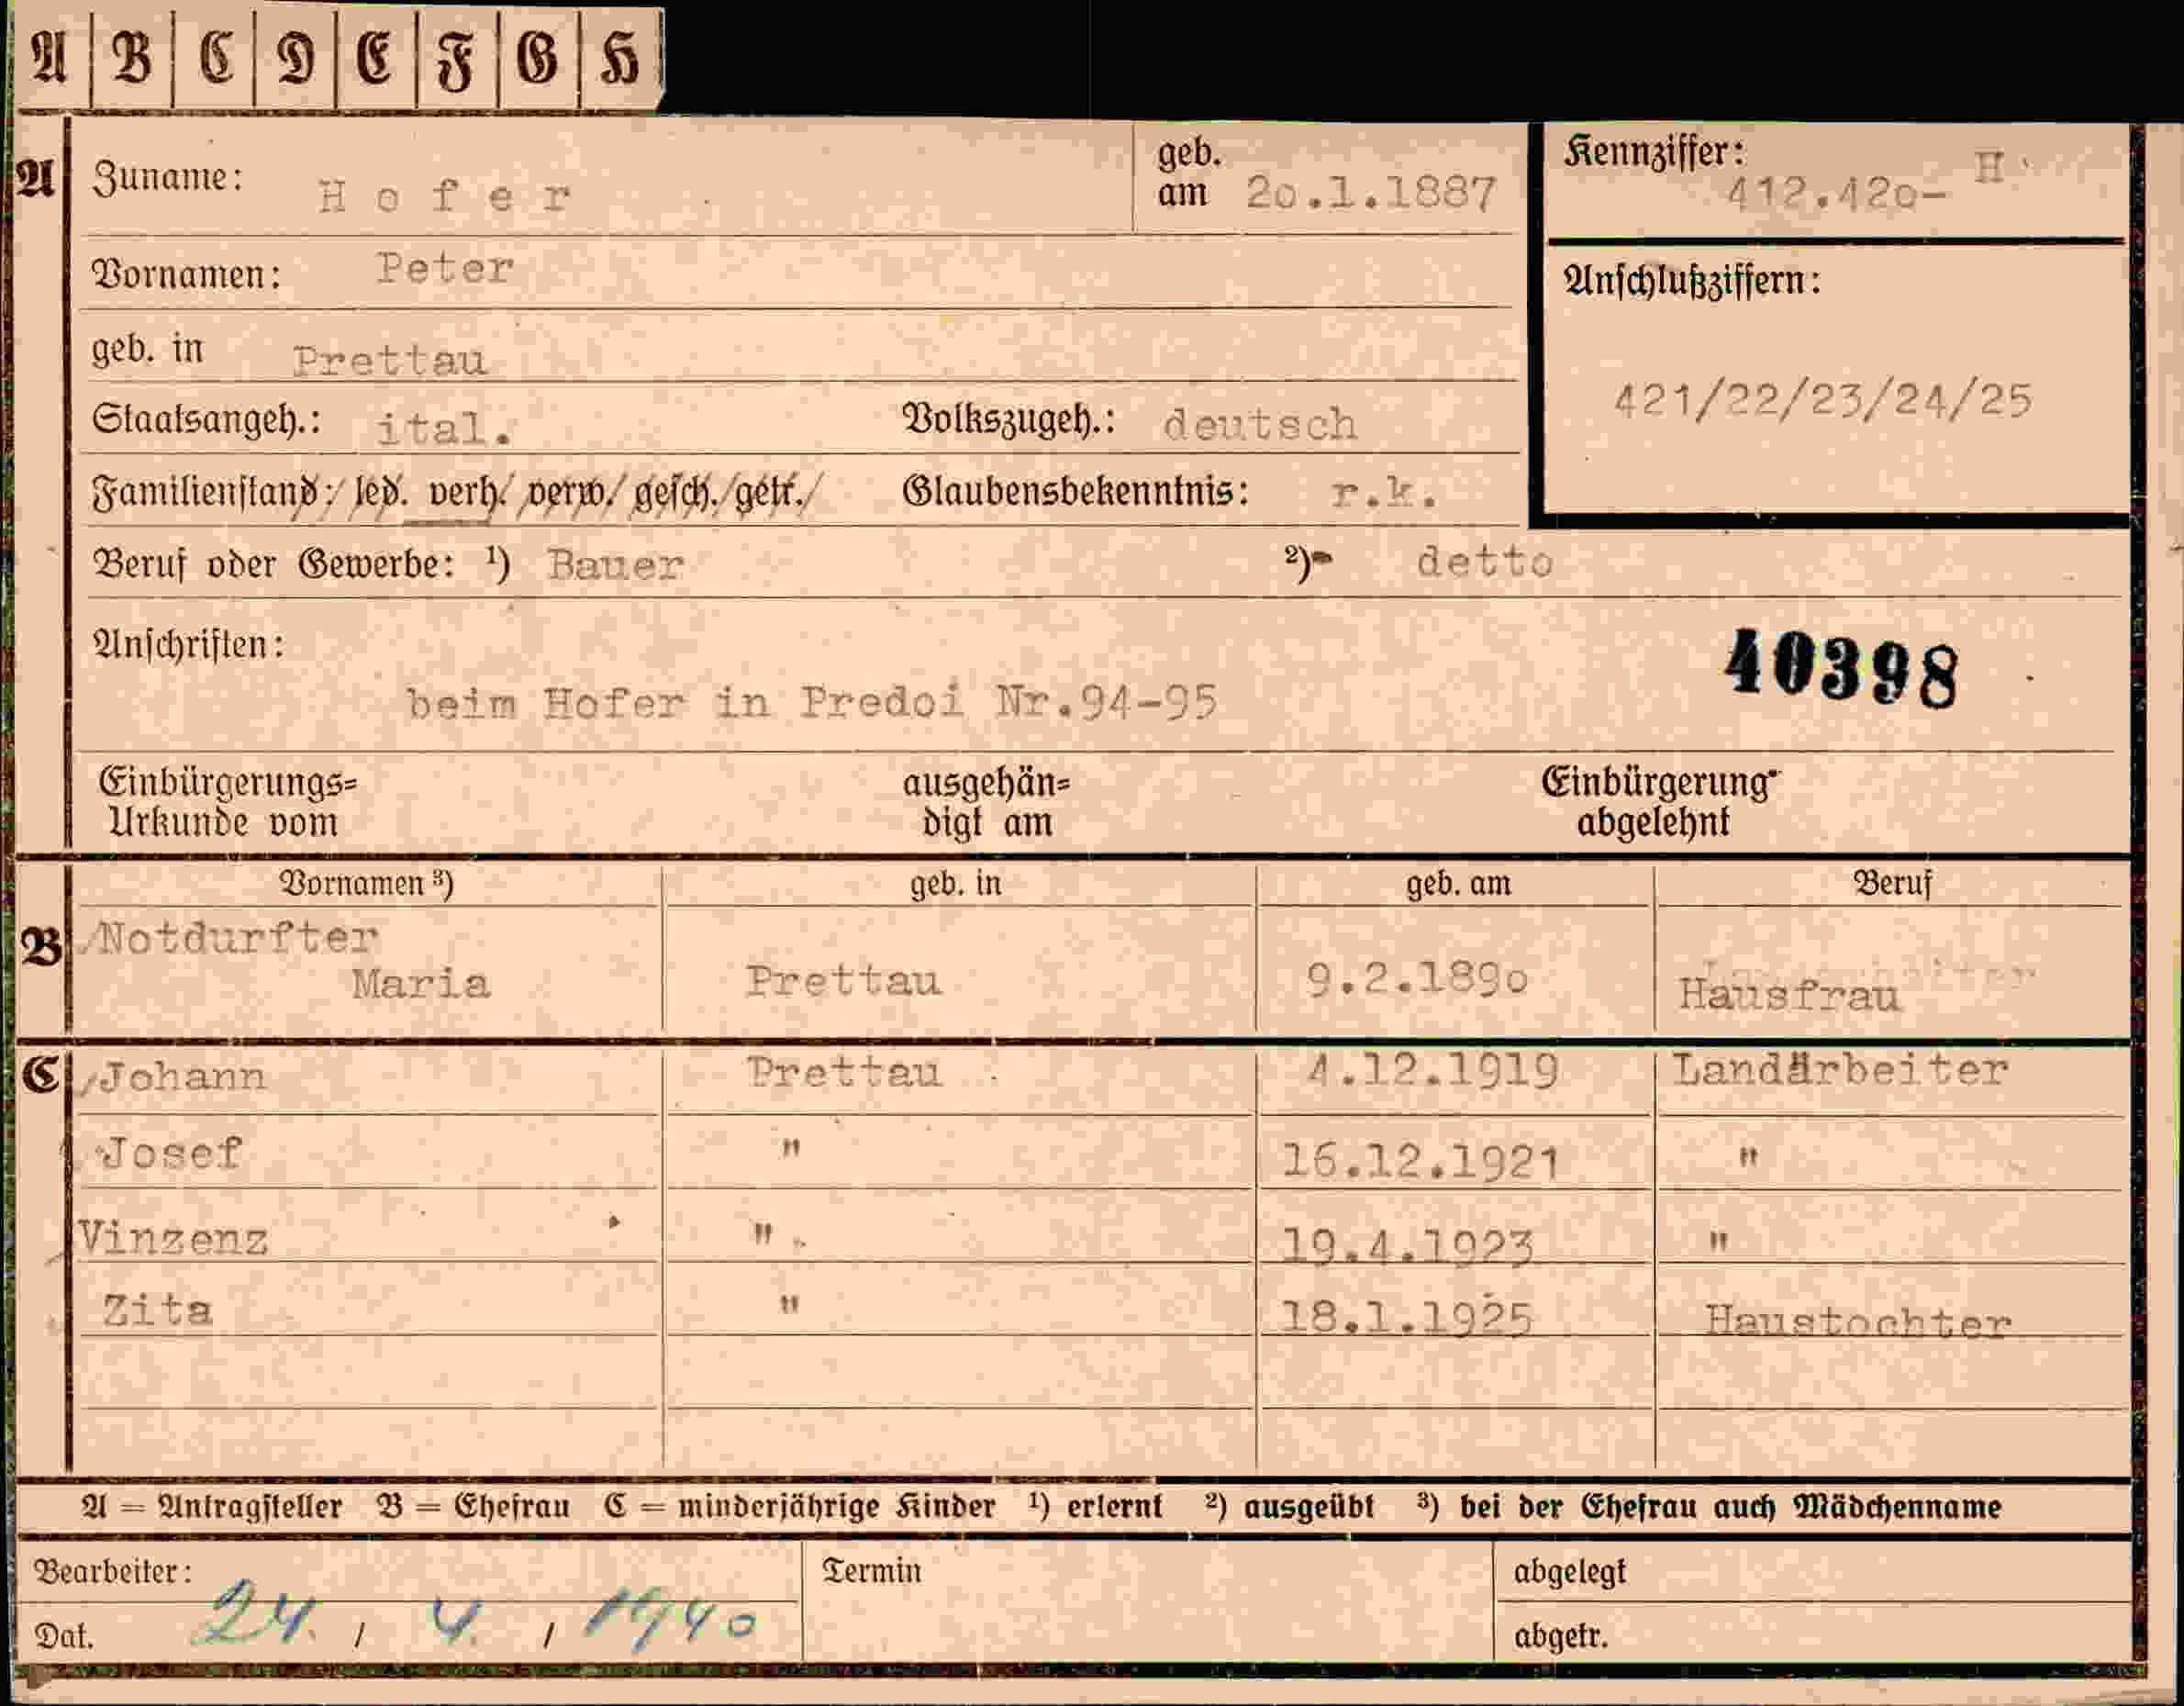 A B C D E F G H
A Zuname: Hofer geb. am 20.1.1887 Kennziffer: 412.420- H
Vornamen: Peter Anschlußziffern:
geb. in Prettau
421/22/23/24/25
Staatsangeh.: ital. Volkszugeh.: deutsch
Familienstand: led. verh. verw. gesch. getr. Glaubensbekenntnis: r.k.
Beruf oder Gewerbe: ¹) Bauer ²) detto
Anschriften: 40398
beim Hofer in Predoi Nr.94-95
Einbürgerungs= ausgehän= Einbürgerung
Urkunde vom digt am abgelehnt
Vornamen ³) geb. in geb. am Beruf
B Notdurfter
Maria Prettau 9.2.1890 Hausfrau
C Johann Prettau 4.12.1919 Landarbeiter
Josef " 16.12.1921 "
Vinzenz " 19.4.1923 "
Zita " 18.1.1925 Haustochter
A = Antragsteller B = Ehefrau C = minderjährige Kinder ¹) erlernt ²) ausgeübt ³) bei der Ehefrau auch Mädchenname
Bearbeiter: Termin abgelegt
Dat. 24. / 4. / 1940 abgetr.